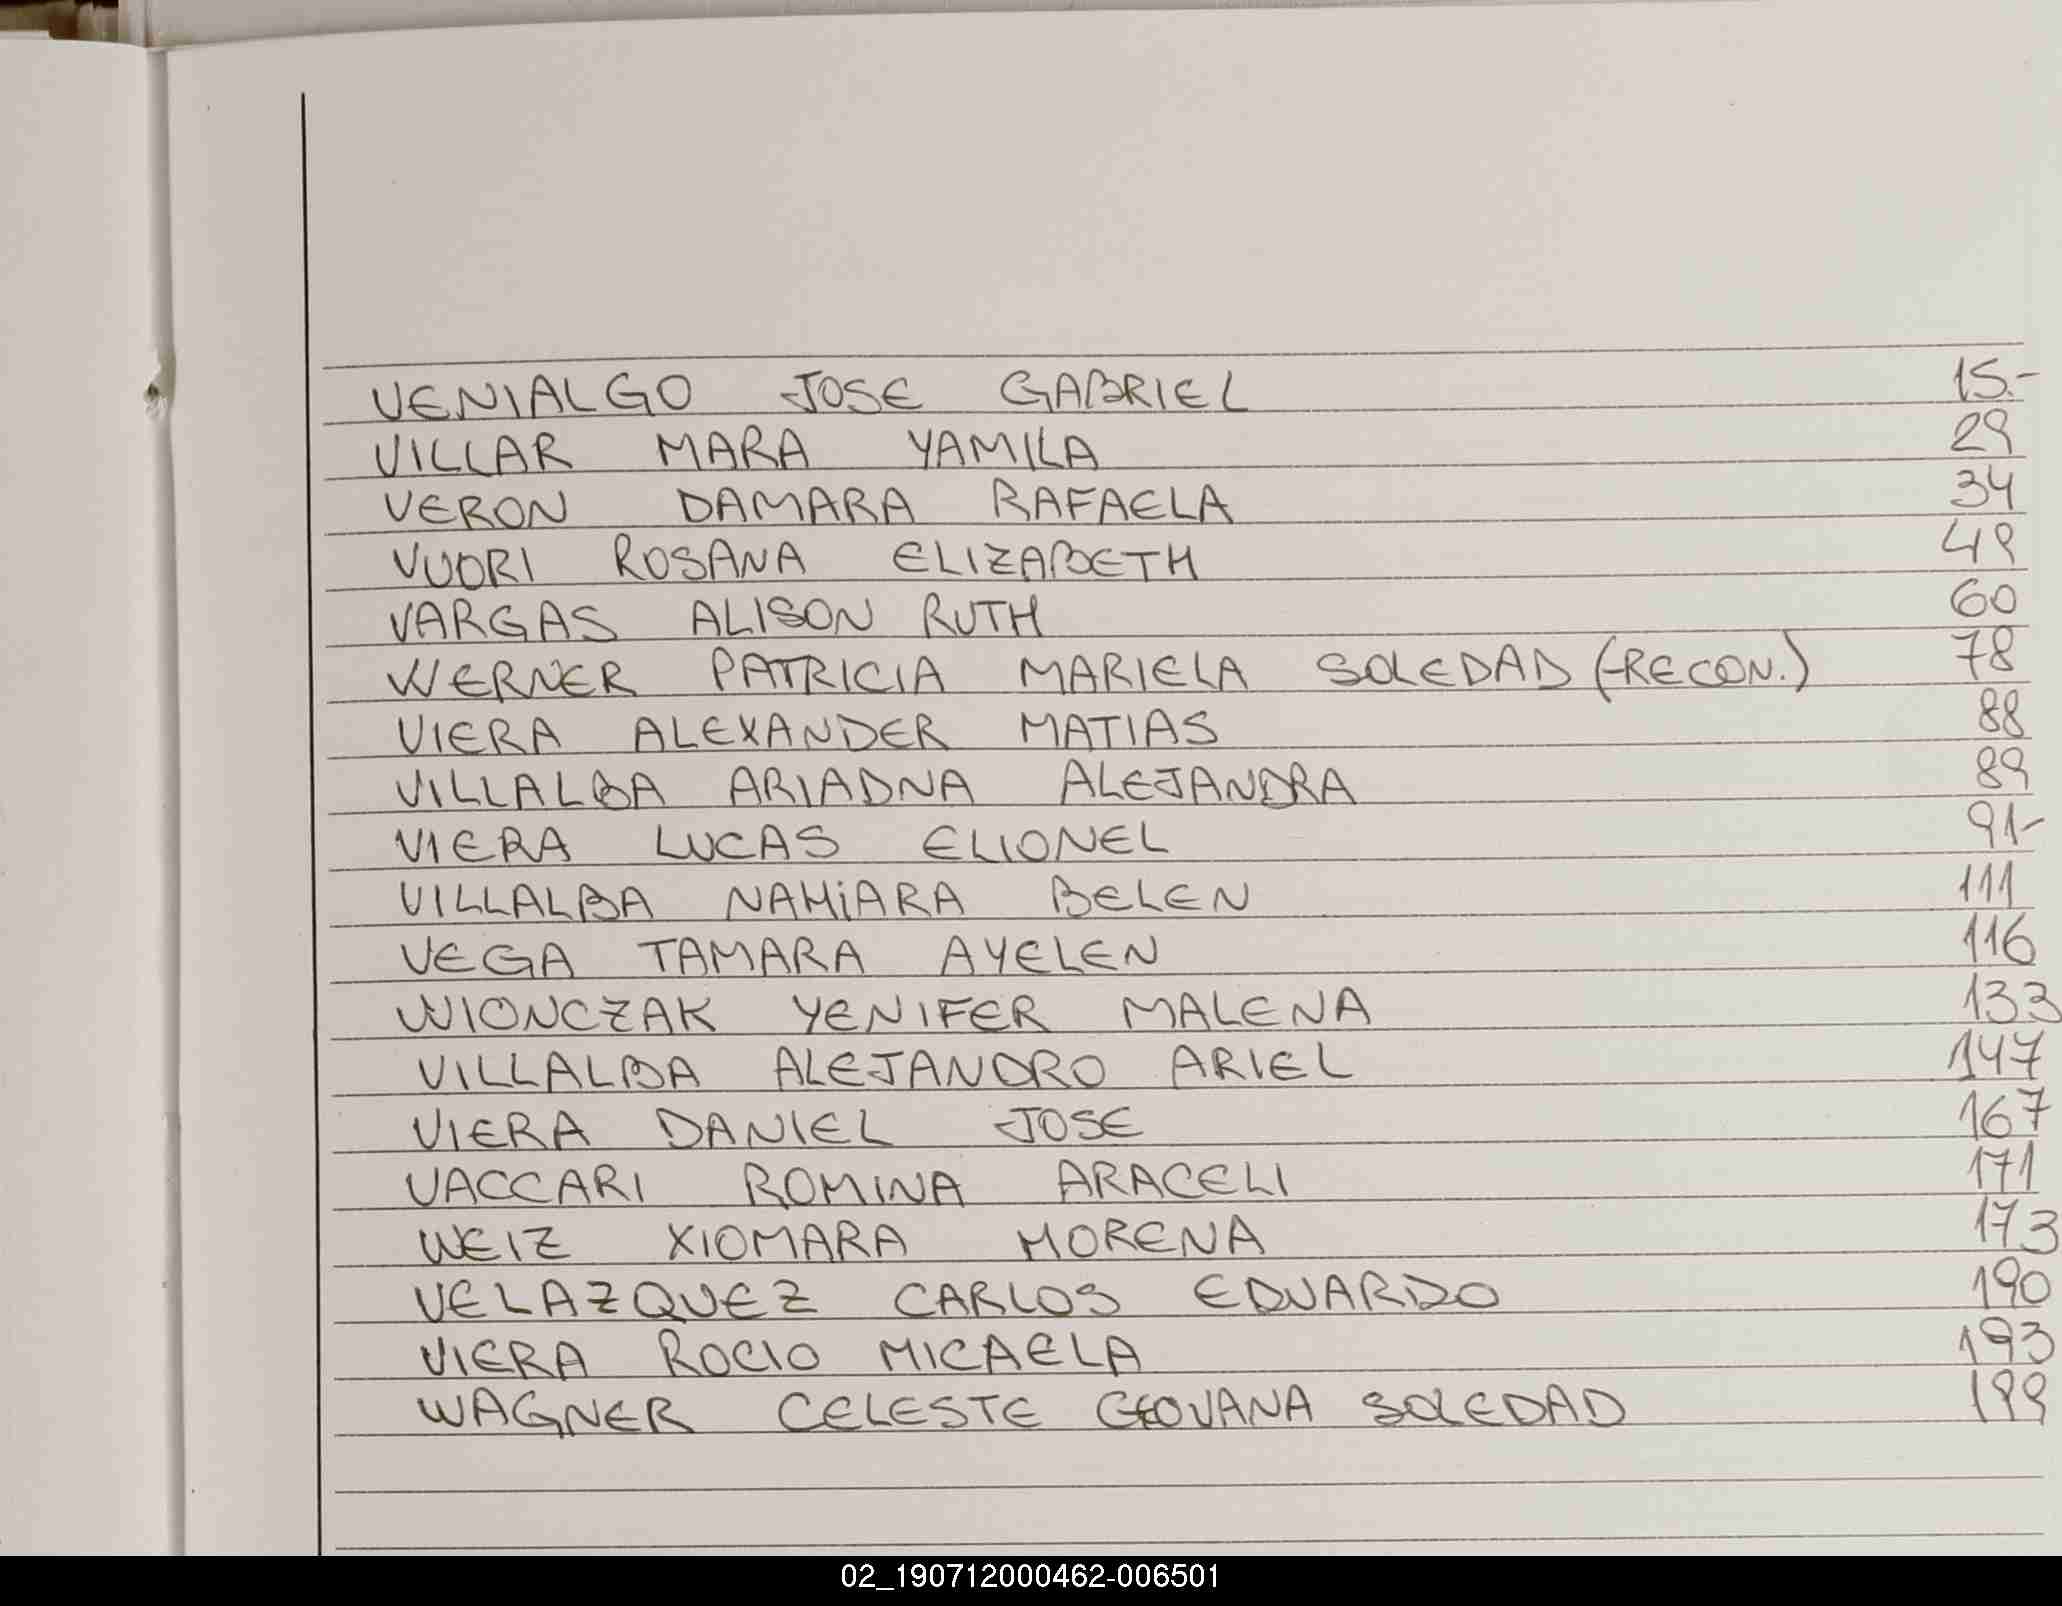 VENIALGO JOSE GABRIEL 15.-
VILLAR MARA YAMILA 29
VERON DAMARA RAFAELA 34
VUORI ROSANA ELIZABETH 49
VARGAS ALISON RUTH 60
WERNER PATRICIA MARIELA SOLEDAD (-RECON.) 78
VIERA ALEXANDER MATIAS 88
VILLALBA ARIADNA ALEJANDRA 89
VIERA LUCAS ELIONEL 91-
VILLALBA NAHIARA BELEN 111
VEGA TAMARA AYELEN 116
WIONCZAK YENIFER MALENA 133
VILLALBA ALEJANDRO ARIEL 147
VIERA DANIEL JOSE 167
VACCARI ROMINA ARACELI 171
WEIZ XIOMARA MORENA 173
VELAZQUEZ CARLOS EDUARDO 190
VIERA ROCIO MICAELA 193
WAGNER CELESTE GEOVANA SOLEDAD 199
02_190712000462-006501